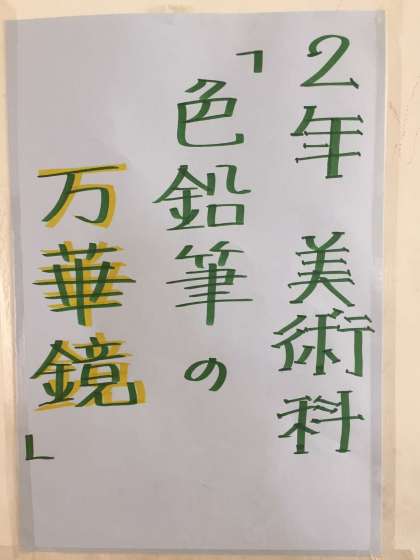 2年 美術科
「色鉛筆の
万華鏡」